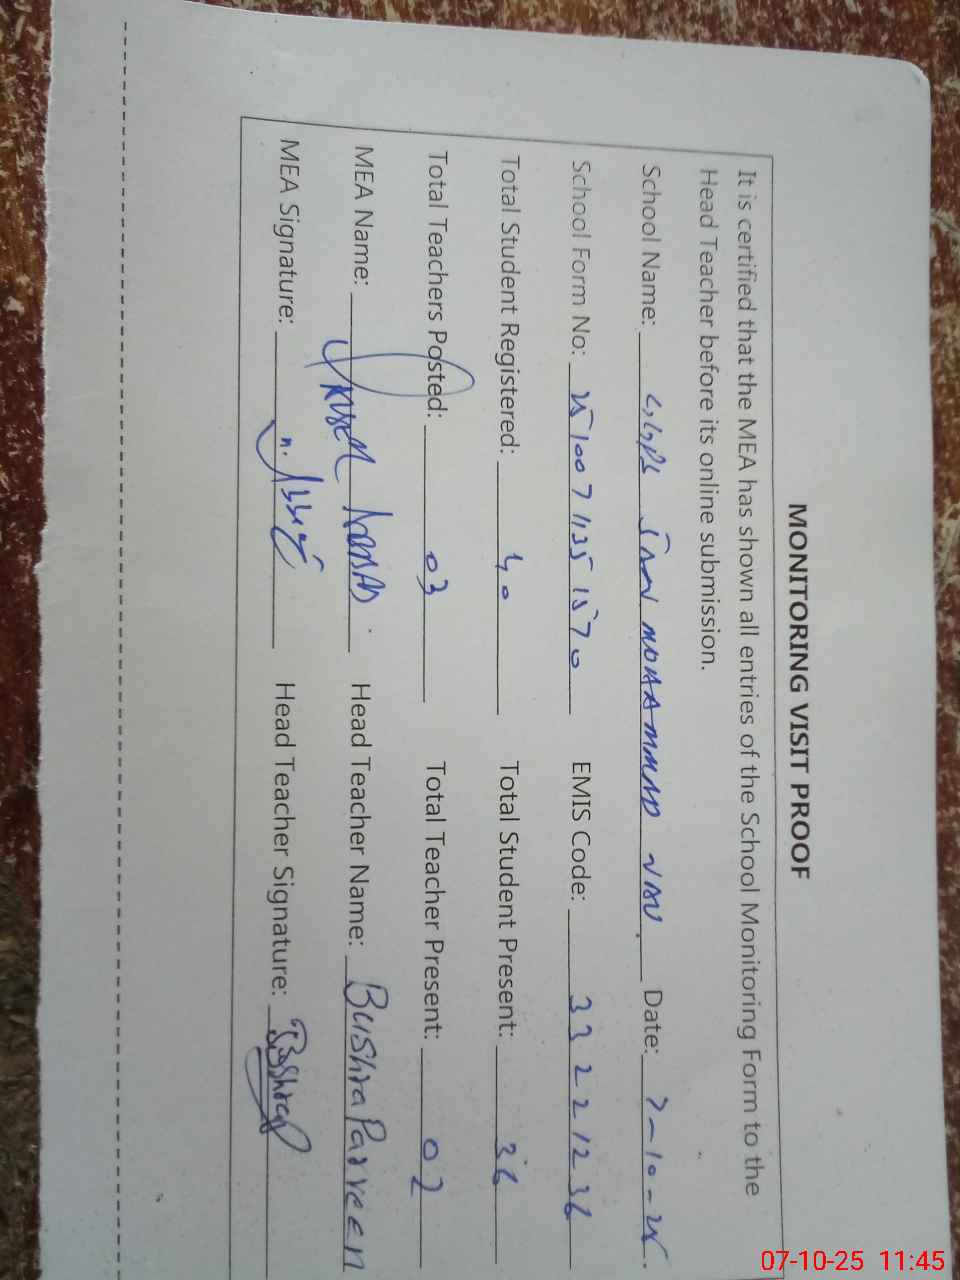 MONITORING VISIT PROOF
It is certified that the MEA has shown all entries of the School Monitoring Form to the
Head Teacher before its online submission.
School Name: MOHAMMAD Date: 7-10-25.
School Form No: EMIS Code: 33221236
Total Student Registered: 40 Total Student Present: 36
Total Teachers Posted: 03 Total Teacher Present: 02
MEA Name: Head Teacher Name: Bushra Parveen
MEA Signature: Head Teacher Signature: Bushra
07-10-25 11:45